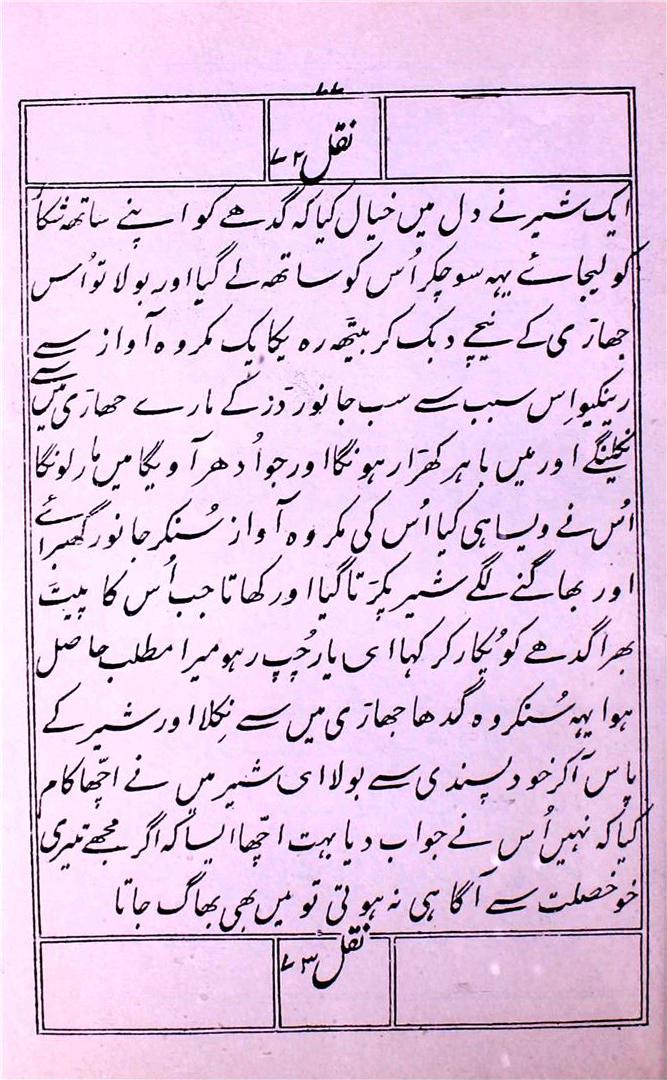 ۷۷
نقل ۷۲
ایک شیر نے دل میں خیال کیا کہ گدھے کو اپنے ساتھ شکار
کو لیجائے یہہ سوچکر اُس کو ساتھ لے گیا اور بولا تو اُس
جھاڑی کے نیچے دبک کر بیٹھہ رہ یکایک مکروہ آواز سے
رینکیو اِس سبب سے سب جانور ڈر کے مارے جھاڑی میں سے
نکلینگے اور میں باہر کھڑا رہونگا اور جو اُدھر آویگا میں مار لونگا
اُس نے ویسا ہی کیا اُس کی مکروہ آواز سُنکر جانور گھبرائے
اور بھاگنے لگے شیر پکڑتا گیا اور کھاتا جب اُس کا پیٹ
بھرا گدھے کو پُکار کر کہا ای یار چُپ رہو میرا مطلب حاصل
ہوا یہہ سُنکر وہ گدھا جھاڑی میں سے نِکلا اور شیر کے
پاس آکر خود پسندی سے بولا ای شیر میں نے اچّھا کام
کیا کہ نہیں اُس نے جواب دیا بہت اچّھا ایسا کہ اگر مجھے تیری
خو خصلت سے آگاہی نہ ہوتی تو میں بھی بھاگ جاتا
نقل ۷۳